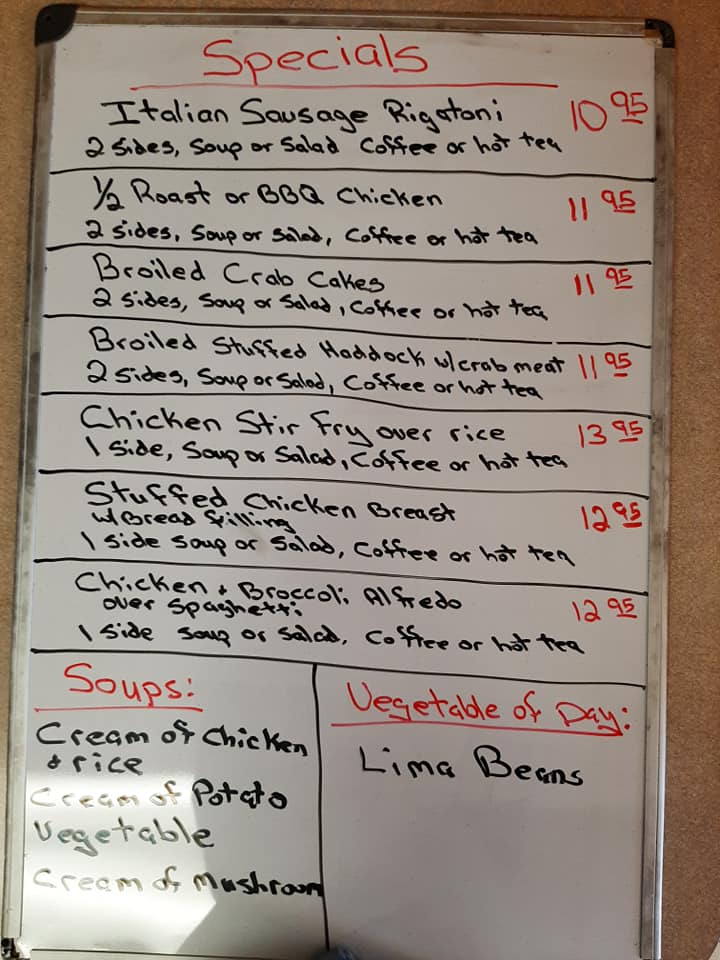 Specials
Italian Sausage Rigatoni 10 95
2 Sides, Soup or Salad Coffee or hot tea
1/2 Roast or BBQ Chicken 11 95
2 sides, Soup or Salad, Coffee or hot tea
Broiled Crab Cakes 11 95
2 sides, Soup or Salad, Coffee or hot tea
Broiled Stuffed Haddock w/crab meat 11 95
2 Sides, Soup or Salad, Coffee or hot tea
Chicken Stir Fry over rice 13 95
1 Side, Soup or Salad, Coffee or hot tea
Stuffed Chicken Breast 12 95
w/Bread filling
1 side Soup or Salad, Coffee or hot tea
Chicken + Broccoli Alfredo 12 95
over Spaghetti
1 side Soup or Salad, Coffee or hot tea
Soups:
Cream of Chicken
+ rice
Cream of Potato
Vegetable
Cream of Mushroom
Vegetable of Day:
Lima Beans